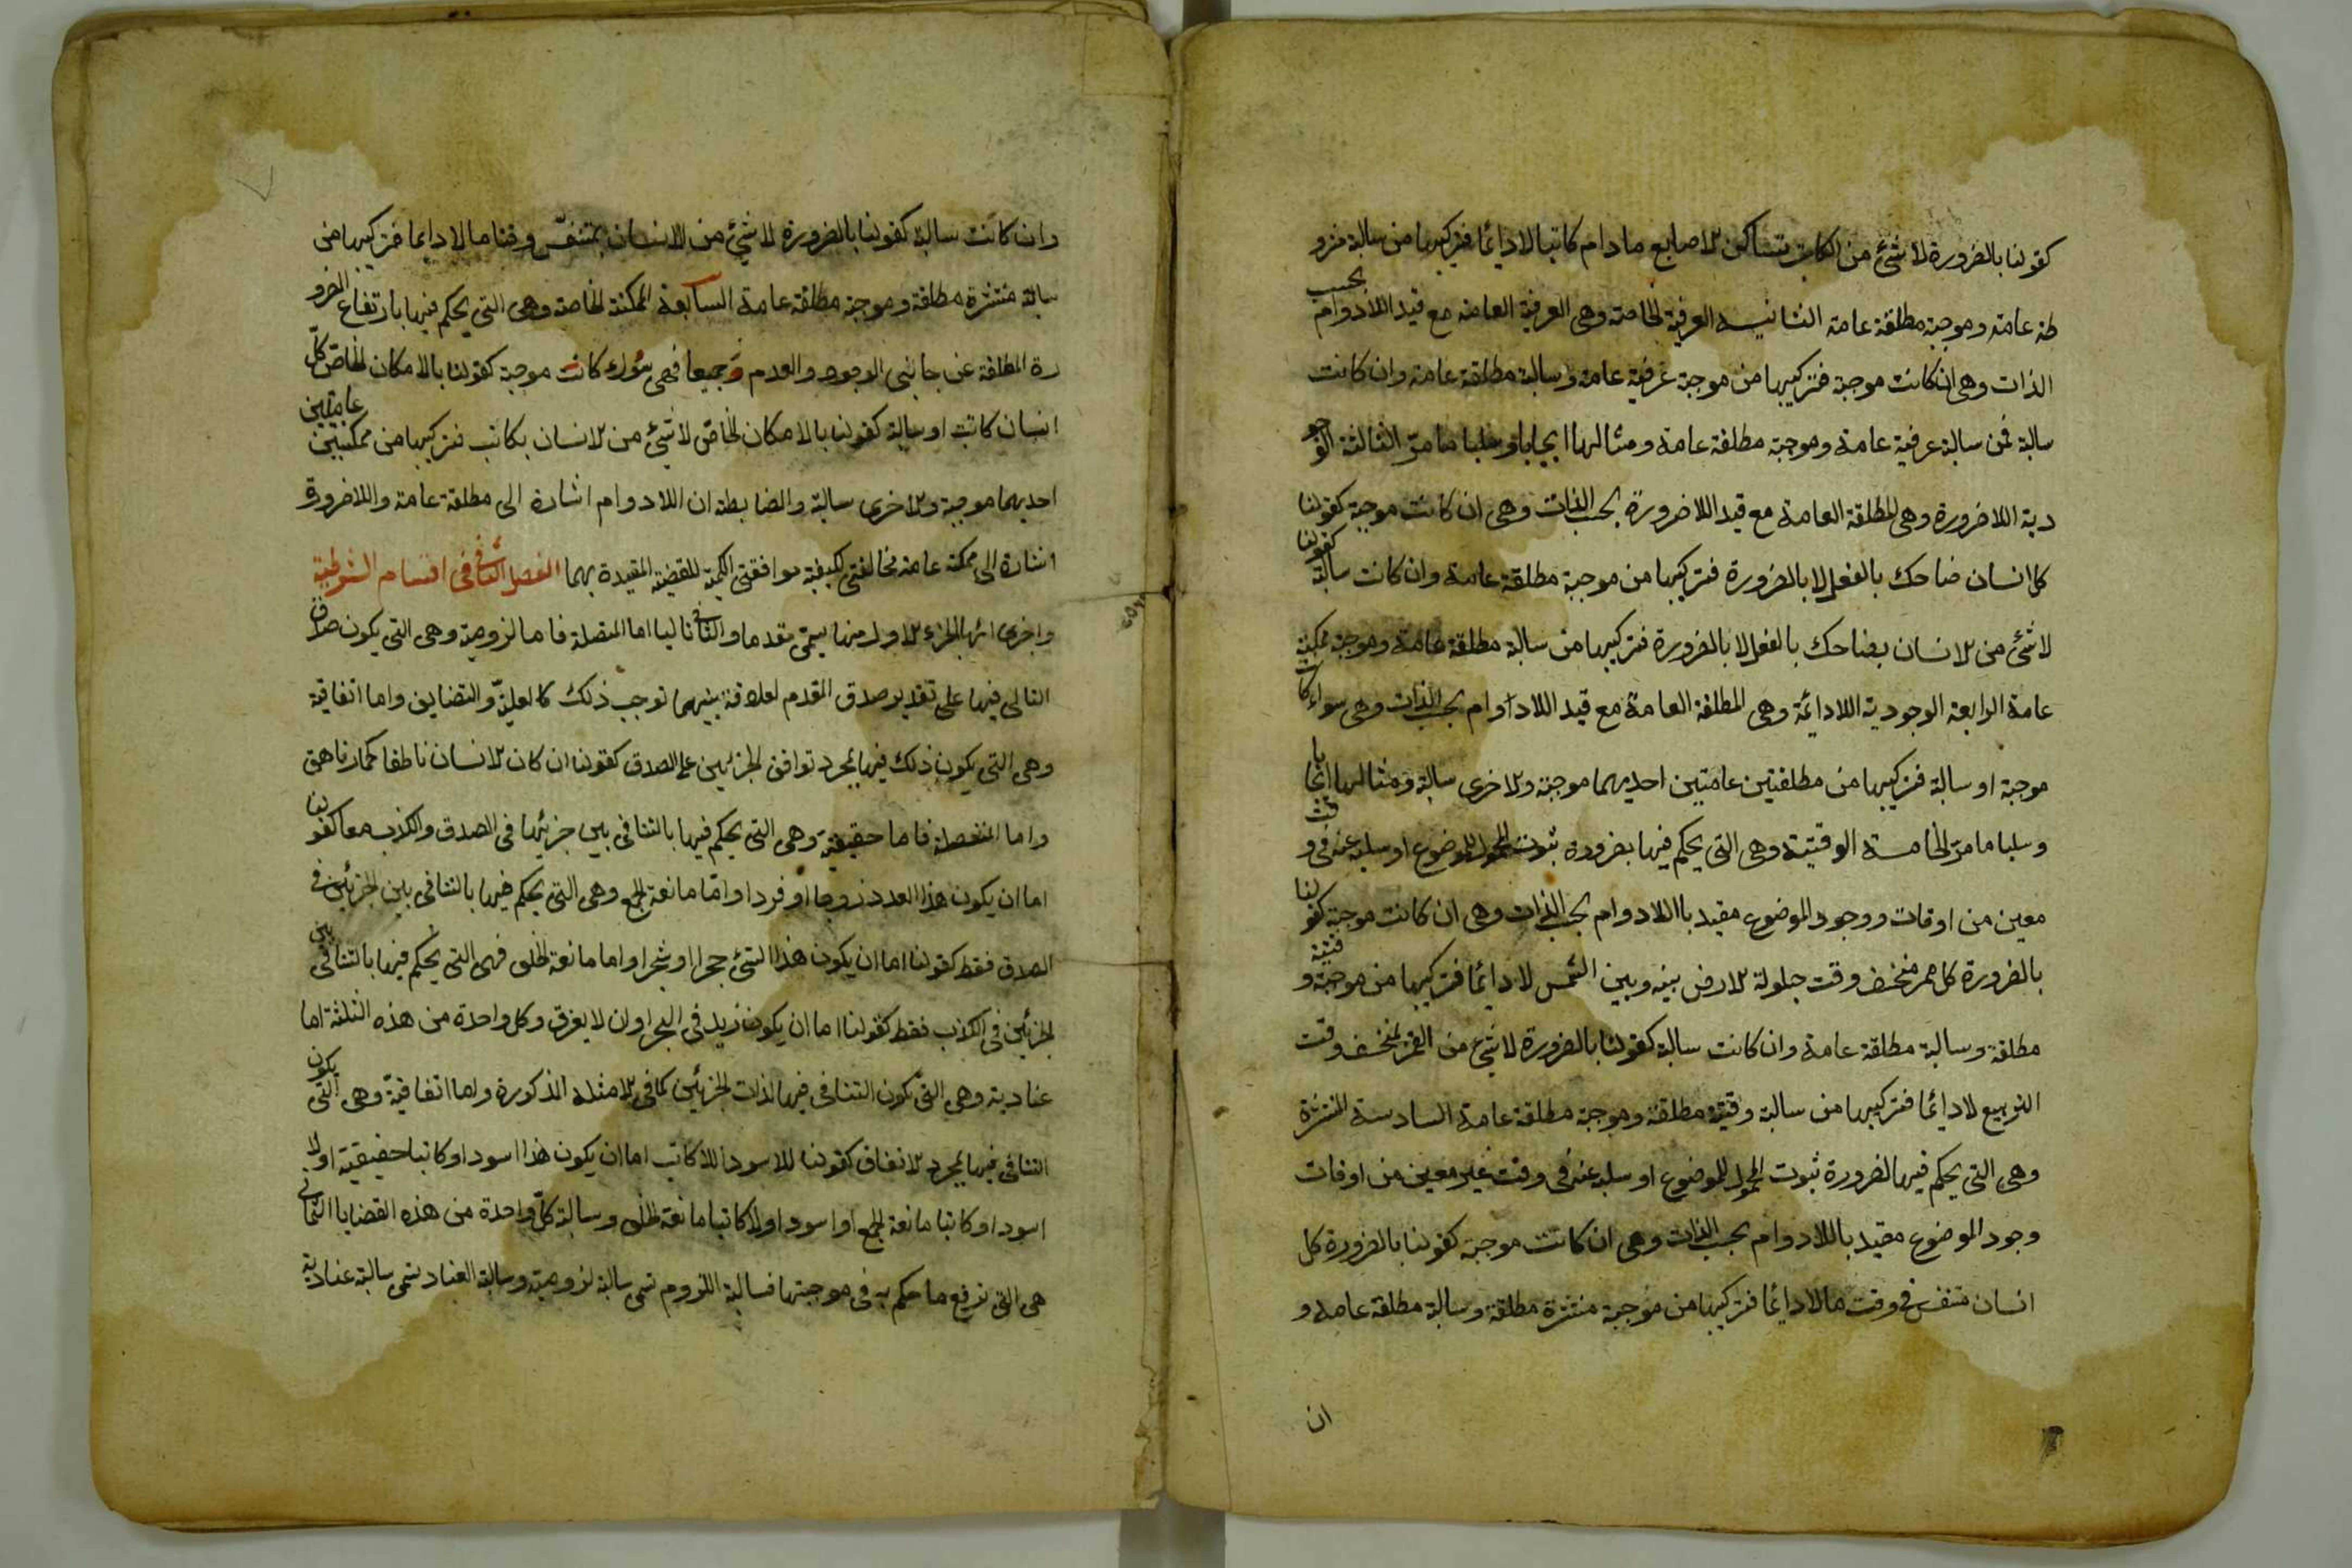 كقولنا بالضرورة لاشئ من الكاتب بساكن الاصابع مادام كاتبا لادائما فتركيبها من سالبة مشرو
طة عامة وموجبة مطلقة عامة الثانية العرفية الخاصة وهى العرفية العامة مع قيد اللادوام بحسب
الذات وهى ان كانت موجبة فتركيبها من موجبة عرفية عامة وسالبة مطلقة عامة وان كانت
سالبة فمن سالبة عرفية عامة وموجبة مطلقة عامة ومثالها ايجابا وسلبا ما مر الثالثة الوجو
دية اللاضرورة وهى المطلقة العامة مع قيد اللاضرورة بحسب الذات وهى ان كانت موجبة كقولنا
كل انسان ضاحك بالفعل لا بالضرورة فتركيبها من موجبة مطلقة عامة وان كانت سالبة كقولنا
لاشئ من الانسان بضاحك بالفعل لا بالضرورة فتركيبها من سالبة مطلقة عامة وموجبة ممكنة
عامة الرابعة الوجودية اللادائمة وهى المطلقة العامة مع قيد اللادوام بحسب الذات وهى سواء كانت
موجبة او سالبة فتركيبها من مطلقتين عامتين احديهما موجبة والاخرى سالبة ومثالها ايجابا
وسلبا ما مر الخامسة الوقتية وهى التى يحكم فيها بضرورة ثبوت المحمول للموضوع او سلبه عنه فى وقت
معين من اوقات ووجود الموضوع مقيد باللادوام بحسب الذات وهى ان كانت موجبة كقولنا
بالضرورة كل قمر منخسف وقت حيلولة الارض بينه وبين الشمس لادائما فتركيبها من موجبة وقتية
مطلقة وسالبة مطلقة عامة وان كانت سالبة كقولنا بالضرورة لاشئ من القمر بمنخسف وقت
التربيع لادائما فتركيبها من سالبة وقتية مطلقة وموجبة مطلقة عامة السادسة المنتشرة
وهى التى يحكم فيها لضرورة ثبوت المحمول للموضوع او سلبه عنه فى وقت غير معين من اوقات
وجود الموضوع مقيد باللادوام بحسب الذات وهى ان كانت موجبة كقولنا بالضرورة كل
انسان متنفس فى وقت ما لادائما فتركيبها من موجبة منتشرة مطلقة وسالبة مطلقة عامة و
ان
وان كانت سالبة كقولنا بالضرورة لاشئ من الانسان بمتنفس وقتا ما لادايما فتركيبها من
سالبة منتشرة مطلقة وموجبة مطلقة عامة السابعة الممكنة الخاصة وهى التى يحكم فيها بارتفاع الضرو
رة المطلقة عن جانبى الوجود والعدم وجميعا فهى سواء كانت موجبة كقولنا بالامكان الخاص كل
انسان كاتب او سالبة كقولنا بالامكان الخاص لاشئ من الانسان بكاتب فتركيبها من ممكنتين عامتين
احديهما موجبة والاخرى سالبة والضابطة ان اللادوام اشارة الى مطلقة عامة واللاضرورة
اشارة الى ممكنة عامة مخالفتى الكيفية موافقتى الكمية للقضية المقيدة بهما الفصل الثانى فى اقسام الشرطية
الجزء الاول منها يسمى مقدما والثانى تاليا اما المتصلة فاما لزومية وهى التى يكون صدق
التالى فيها على تقدير صدق المقدم لعلاقة بينهما توجب ذلك كالعلية والتضايف واما اتفاقية
وهى التى يكون ذلك فيها بمجرد توافق الجزئين على الصدق كقولنا ان كان الانسان ناطقا فالحمار ناهق
واما المنفصلة فاما حقيقية وهى التى يحكم فيها بالتنافى بين جزئيها فى الصدق والكذب معا كقولنا
اما ان يكون هذا العدد زوجا او فردا واما مانعة الجمع وهى التى يحكم فيها بالتنافى بين الجزئين فى
الصدق فقط كقولنا اما ان يكون هذا الشئ حجرا او شجرا واما مانعة الخلو فهى التى يحكم فيها بالتنافى بين
الجزئين فى الكذب فقط كقولنا اما ان يكون زيد فى البحر اوان لا يغرق وكل واحدة من هذه الثلثة اما
عنادية وهى التى يكون التنافى فيها لذات الجزئين كما فى الامثلة المذكورة واما اتفاقية وهى التى يكون
التنافى فيها بمجرد الاتفاق كقولنا للاسود اللاكاتب اما ان يكون هذا اسود او كاتبا حقيقية او لا
اسود او كاتبا مانعة الجمع او اسود او لا كاتبا مانعة الخلو وسالبة كل واحدة من هذه القضايا الثمانى
هى التى ترفع ما حكم به فى موجبتها فسالبة اللزوم تسمى سالبة لزومية وسالبة العناد تسمى سالبة عنادية